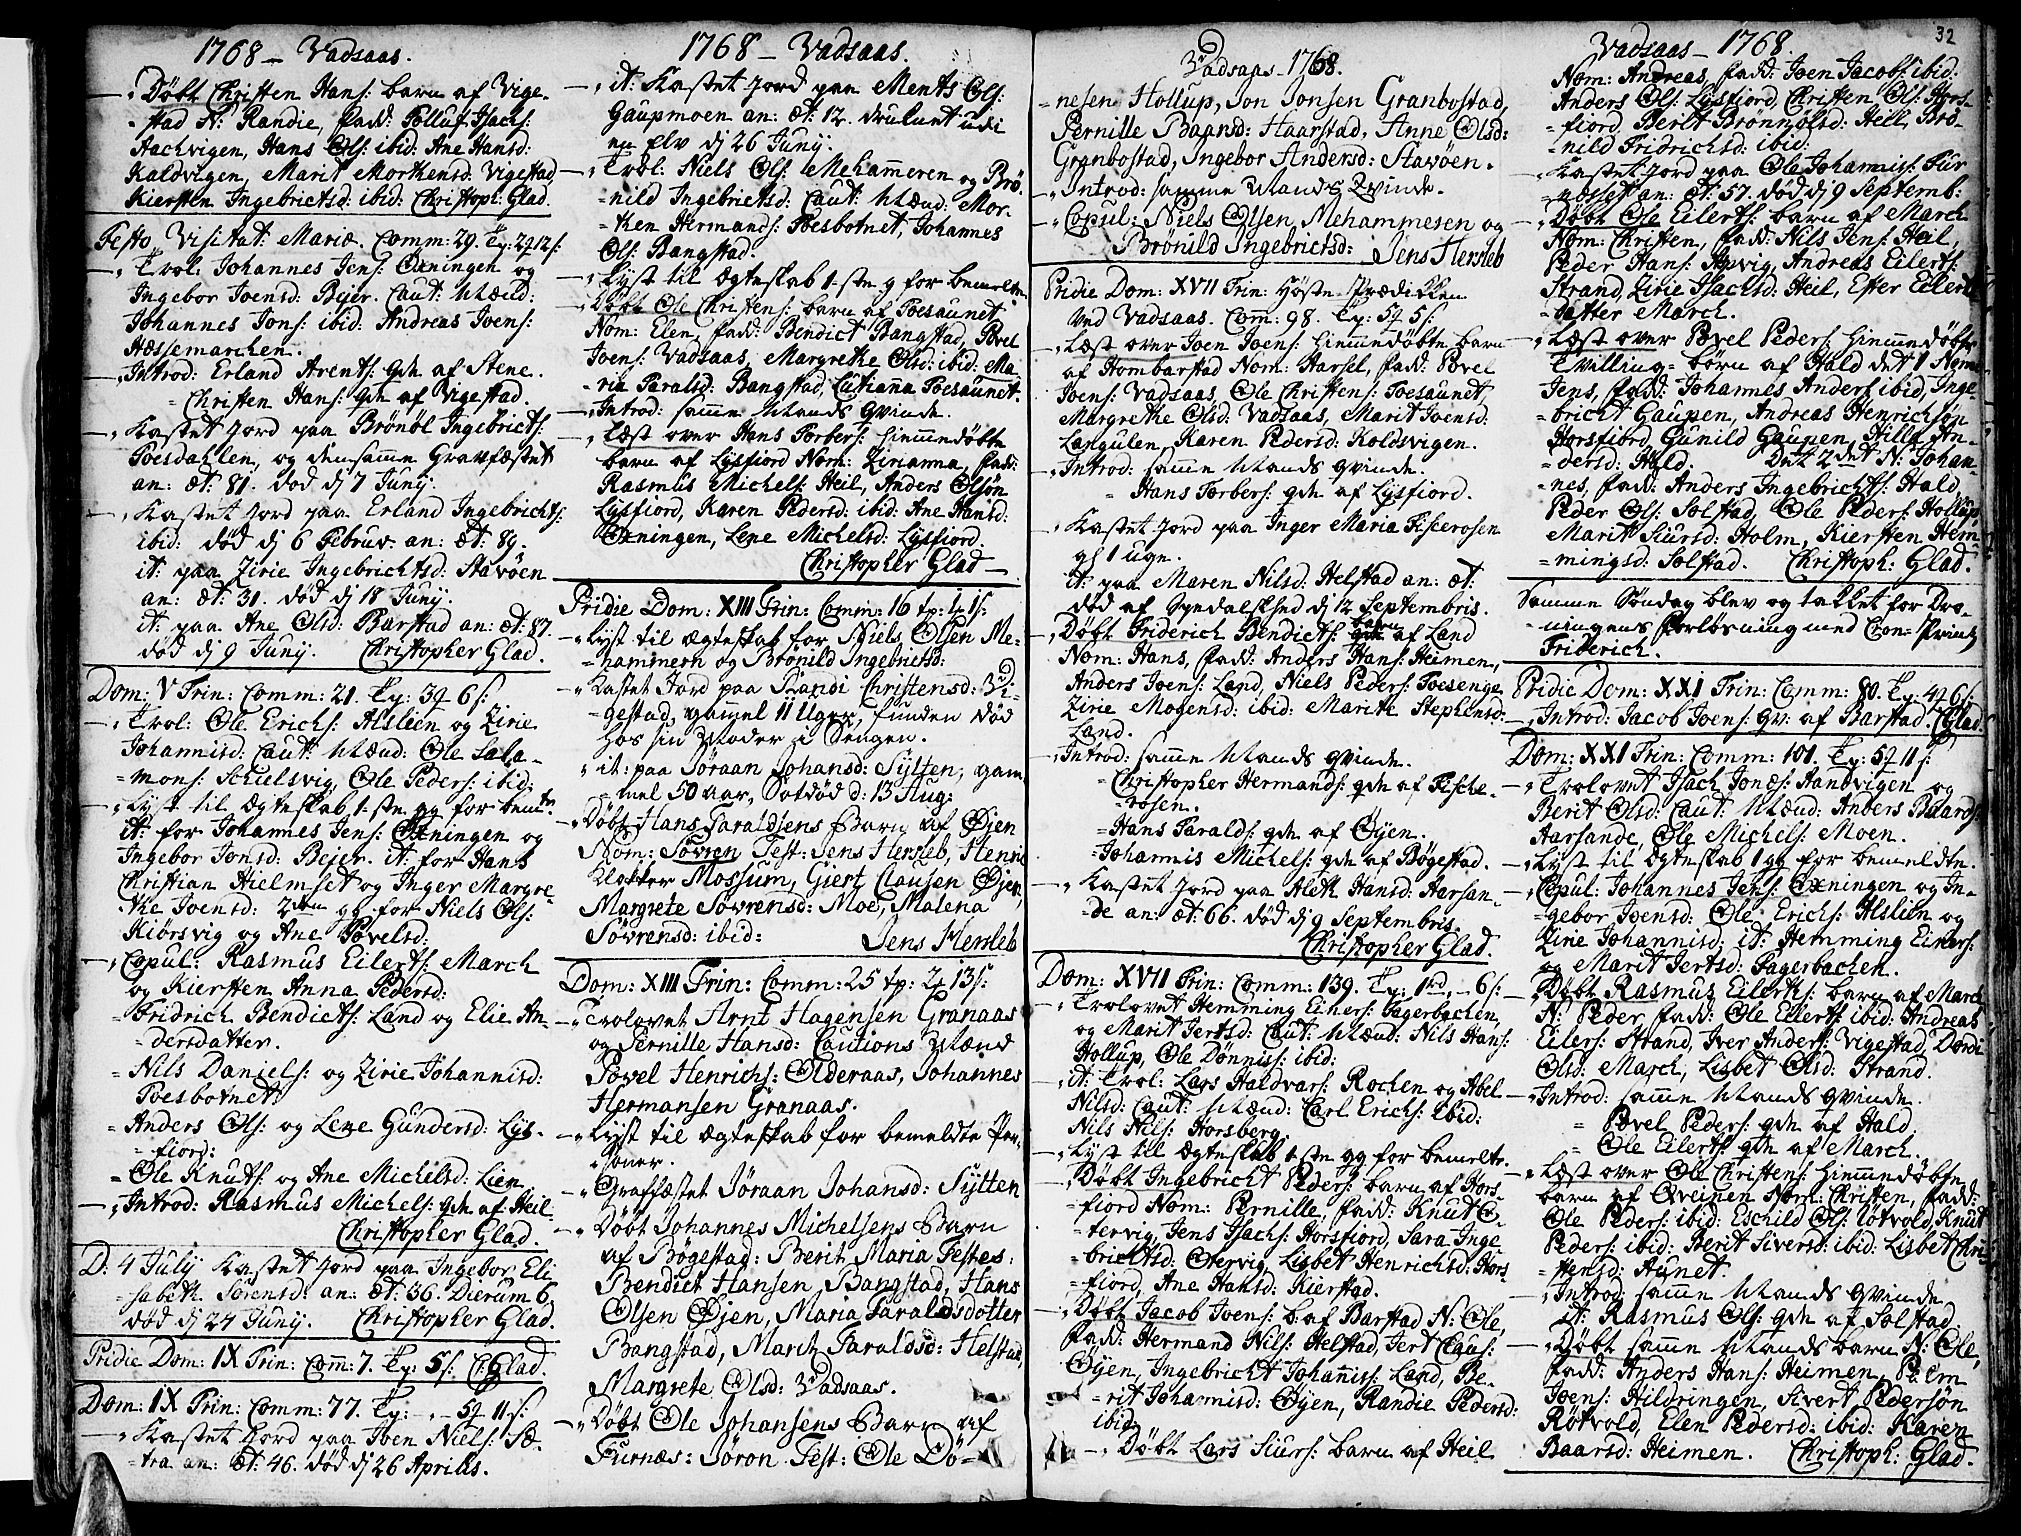 1768 – Vadsaas.
–, Döbt Christen Hans: barn af Vige-
= stad N: Randie, fadd: Tolluf Isachs:
Aachvigen, Hans Ols: ibid: Ane Hansd:
Kaldvigen, Marit Mortensd: Vigestad
Kiersten Ingebrictsd: ibid: Christoph: Glad.
Festo Visitat: Mariæ. Comm: 29.
–, Trol: Johannes Jens: Oxningen og
Ingebor Joensd: Bejer. Caut: Mænd:
Johannes Jons: ibid: Andreas Joens:
Hæssemarchen.
–, Introd: Erland Arents: qde af Stene.
= Christen Hans: qde af Vigestad.
–, Kastet Jord paa Brönöl Ingebricts:
Toesdahlen, og den samme Gravfæstet
an: æt: 81. död dj 7 Junij.
–, Kastet Jord paa Erland Ingebrichts:
ibid: död dj 6 Februv. an: æt: 89.
it: paa Zirie Ingebrichtsd: Stavöen
an: æt: 31. död dj 18 Junij.
it: paa Ane Olsd: Barstad an: æt: 87.
död dj 9 Junij. Christopher Glad.
Dom: V Trin: Comm: 21. Tp: 3# 6s:
–, Trol: Ole Erichs: Alslien og Zirie
Johannisd: Caut: Mænd: Ole Sala-
= mons: Schielsvig, Ole Peders: ibid:
–, Lyst til ægteskab 1-ste gg for bemte
it: for Johannes Jens: Oxningen og
Ingebor Jonsd: Bejer. it: for Hans
Christian Hielmset og Inger Margre-
= the Joensd: 2den gg for Niels Ols:
Kiorsvig og Ane Povelsd:
–, Copul: Rasmus Eilerts: March
og Kiersten Anna Pedersd:
= Fridrich Bendicts: Land og Elie An-
= dersdatter.
= Nils Daniels: og Zirie Johannisd:
Toesbotnet.
= Anders Ols: og Lene Gundersd: Lys-
= fiord:
= Ole Knuts: og Ane Michelsd: Lien
–, Introd: Rasmus Michels: qde af Heil
Christopher Glad.
D: 4 July Kastet Jord paa Ingebor Eli
= sabeth Sörensd: an: æt: 36. Dierum 6.
död dj 24 Junij. Christopher Glad.
Pridie Dom: IX Trin: Com: 7. Tp: 5s: C: Glad.
Dom: IX Trin: Comm: 77. Tp: – 5# 11s:
–, Kastet Jord paa Joen Niels: Sæ-
= tra an: æt: 46. död dj 26 Aprilis.
1768 – Vadsaas.
–, it: Kastet Jord paa Ments Ols:
Gaupmoen an: æt: 12. druknet udi
en Elv dj 26 Junij.
–, Trol: Niels Ols: Mehammeren og Brö-
= nild Ingebrictsd: Caut: Mænd: Mor-
= ten Hermands: Toesbotnet, Johannes
Ols: Bangstad.
–, Lyst til ægteskab 1-ste g for bemelte.
–, Döbt Ole Christens: barn af Toesaunet
Nom: Elen, fadd: Bendict Bangstad, Povel
Joens: Vadsaas, Margrethe Olsd: ibid: Ma-
ria Taralsd: Bangstad, Lutiana Toesaunet.
–, Introd: samme Mands Qvinde.
–, Læst over Hans Torbers: hiemmedöbte
barn af Lysfiord Nom: Zirianna, fadd:
Rasmus Michels: Heil, Anders Olsön
Lysfiord, Karen Pedersd: ibid: Ane Hansd:
Oxningen, Lene Michelsd: Lysfiord.
Christopher Glad –
Pridie Dom: XIII Trin: Comm: 16 tp: 1# 1s:
–, Lyst til ægteskab for Niels Olsen Me-
= hammern og Brönild Ingebrictsd:
–, Kastet Jord paa Randi Christensd: Vi-
= gestad, gammel 11 Uger, funden död
hos sin Moder i Sengen.
–, it: paa Jöraan Johansd: Sylten, gam
= mel 50 aar, Sotdöd d: 13 Aug:
–, Döbt Hans Taraldsens Barn af Öjen
Nom: Sövren Test: Jens Hersleb, Henric
Klokker Mossum, Giert Clausen Öjen,
Margrete Sövrensd: Moe, Malena
Sövrensd: ibid: Jens Hersleb
Dom: XIII Trin: Comm: 25 tp: 2# 13s:
–, Trolovet Arnt Hagensen Granaas
og Pernille Hansd: Cautions Mænd
Povel Henrichs: Olderaas, Johannes
Hermansen Granaas.
–, Lyst til ægteskab for bemeldte Per-
= soner.
–, Graffæstet Jöraan Johansd: Sylten
–, Döbt Johannes Michelsens Barn
af Bögestad: Berit Maria Testes:
Bendict Hansen Bangstad, Hans
Olsen Öjen, Maria Taraldsdotter
Bangstad, Marit Taraldsd: Helstad,
Margrete Olsd: Vadsaas.
–, Döbt Ole Johansens Barn af
Furnæs: Jöron Test: Ole Dö-
Vadsaas – 1768.
= nesen Hollup, Jon Jonsen Granbostad,
Pernille Baansd: Haarstad, Anne Olsd:
Granbostad, Ingebor Andersd: Stavöen.
–, Introd: samme Mands Qvinde.
–, Copul: Niels Olsen Mehammeren og
Brönild Ingebrictsd: Jens Hersleb
Pridie Dom: XVII Trin: Höste-Prædikken
ved Vadsaas. Com: 98. Tp: 5# 5s:
–, Læst over Joen Joens: hiemmedöbte barn
af Hombarstad Nom: Harsel, fadd: Povel
Joens: Vadsaas, Ole Christens: Toesaunet,
Margrethe Olsd: Vadsaas, Marit Joensd:
Langulen, Karen Pedersd: Koldsvigen.
–, Introd: samme Mands Qvinde.
= Hans Torbers: qde af Lysfiord.
–, Kastet Jord paa Inger Maria Fiscerosen
gl 1 uge.
it: paa Maren Nilsd: Helstad an: æt:
död af Spedalskhed dj 12 Septembris.
–, Döbt Friderich Bendicts: barn af Land
Nom: Hans, fadd: Anders Hans: Heimen,
Anders Joens: Land, Niels Peders: Toesenge
Zirie Mogensd: ibid: Marite Stephensd:
Land.
–, Introd: samme Mands qvinde.
= Christopher Hermands: qde af Fische-
= rosen.
= Hans Taralds: qde af Öyen.
= Johannis Michels: qde af Bögestad.
–, Kastet Jord paa Aleth Hansd: Aarsan-
= de an: æt: 66. död dj 9 Septembris.
Christopher Glad.
Dom: XVII Trin: Comm: 139. Tp: 1rd – 6s:
–, Trolovet Hemming Einers: Fagerbachen
og Marit Jertsd: Caut: Mænd: Nils Hans:
Hollup, Ole Dönnis: ibid:
–, it: Trol: Lars Haldvars: Rochen og Abel
Nilsd: Caut: Mænd: Carl Erichs: ibid:
Nils Nils: Horsberg.
–, Lyst til ægteskab 1-ste gg for bemelte.
–, Döbt Ingebricht Peders: barn af Hors-
= fiord Nom: Pernille, fadd: Knut O-
= tervig, Jens Isachs: Horsfiord, Sara Inge
= brictsd: Otervig, Lisbet Henrichsd: Hors
= fiord, Ane Hansd: Kierstad.
–, Döbt Jacob Joens: b: af Barstad N: Ole,
fadd: Hermand Nils: Helstad, Jert Claus:
Öyen, Ingebricht Johannis: Land, Be-
= rit Johannisd: Öyen, Randie Pedersd:
ibid:
–, Döbt Lars Siurs: barn af Heil
32
Vadsaas – 1768.
Nom: Andreas, fadd: Joen Jacobs: ibid:
Anders Ols: Lysfiord, Christen Ols: Hors-
= fiord, Berit Brönnölsd: Heil, Brö-
= nild Fridrichsd: ibid:
–, Kastet Jord paa Ole Johannis: Fur
næsset an: æt: 57. död dj 9 Septemb:
–, Döbt Ole Eilerts: barn af March
Nom: Christen, fadd: Nils Jens: Heil,
Peder Hans: Apvig, Andreas Eilerts:
Strand, Zirie Isachsd: Heil, Ester Eilerts
datter March.
–, Læst over Povel Peders: hiemmedöbte
Tvilling-börn af Hald det 1 Nom:
Jens, fadd: Johannes Anders: ibid, Inge-
= bricht Gaupen, Andreas Henrichsön
Horsfiord, Gunild Gaupen, Hille An-
= dersd: Hald. Det 2det N: Johan-
= nes, fadd: Anders Ingebrichts: Hald,
Peder Ols: Solstad, Ole Peders: Hollup,
Marit Siursd: Holm, Kiersten Hem-
= mingsd: Solstad. Christoph: Glad.
Samme Söndag blev og takket for Dro-
= ningens forlösning med Cron-Printz
Friderich.
Pridie Dom: XXI Trin: Comm: 80. Tp: 4# 6s:
–, Introd: Jacob Joens: qv: af Barstad. Glad.
Dom: XXI Trin: Comm: 101. Tp: 5# 11s:
–, Trolovet Isach Jones: Aandvigen og
Berit Olsd: Caut: Mænd: Anders Baards:
Aarsande, Ole Michels: Moen.
–, Lyst til ægteskab 1 gg for bemeldte.
–, Copul: Johannes Jens: Oxningen og In-
= gebor Joensd: Ole Erichs: Alslien og
Zirie Johannisd: it: Hemming Einers:
og Marit Jertsd: Fagerbachen.
–, Döbt Rasmus Eilerts: barn af March
N: Peder fadd: Ole Eilerts: ibid: Andreas
Eilers: Strand, Iver Anders: Vigestad, Dordi
Olsd: March, Lisbet Olsd: Strand.
–, Introd: samme Mands qvinde.
= Povel Peders: qde af Hald.
= Ole Eilerts: qde af March.
–, Læst over Ole Christens: hiemmedöbte
barn af Qveinen Nom: Christen, fadd:
Ole Peders: ibid: Eschild Ols: Rötvold, Knut
Peders: ibid: Berit Siversd: ibid: Lisbet Chri-
= stensd: Aunet.
–, Introd: samme Mands qvinde
it: Rasmus Ols: qde af Solstad.
–, Döbt samme Mands barn N: Ole,
fadd: Anders Hans: Heimen,
Joens: Hildringen, Sivert Pedersön
Rötvold, Elen Pedersd: ibid: Karen
Baarsd: Heimen. Christoph: Glad.